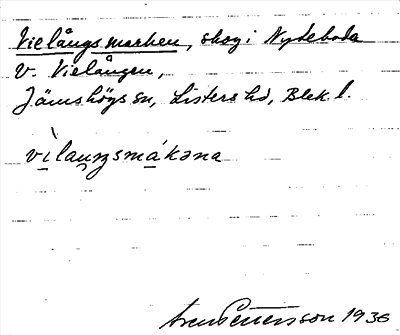 Vielångsmarken, skog i Nydeboda
v. Vielången,
Jämshögs sn, Listers hd, Blek. l.
vìlaŋsmákəna
Sven Pettersson 1936